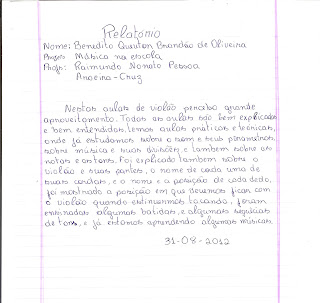 Relatório
Nome: Benedito Queuton Brandão de Oliveira
Projeto: Música na escola
Profs: Raimundo Nonato Pessoa
Anoeira-Cruz
Nestas aulas de violão percebo grande
aproveitamento. Todas as aulas são bem explicadas
e bem entendidas, temos aulas práticas e técnicas,
onde já estudamos sobre o som e seus parâmetros,
sobre música e suas divisões, e também sobre as
notas e os tons. Foi explicado também sobre o
violão e suas partes, o nome de cada uma de
suas cordas, e o nome e a posição de cada dedo,
foi mostrado a posição em que devemos ficar com
o violão quando estivermos tocando, foram
ensinadas algumas batidas, e algumas sequências
de tons, e já estamos aprendendo algumas músicas.
31-08-2012